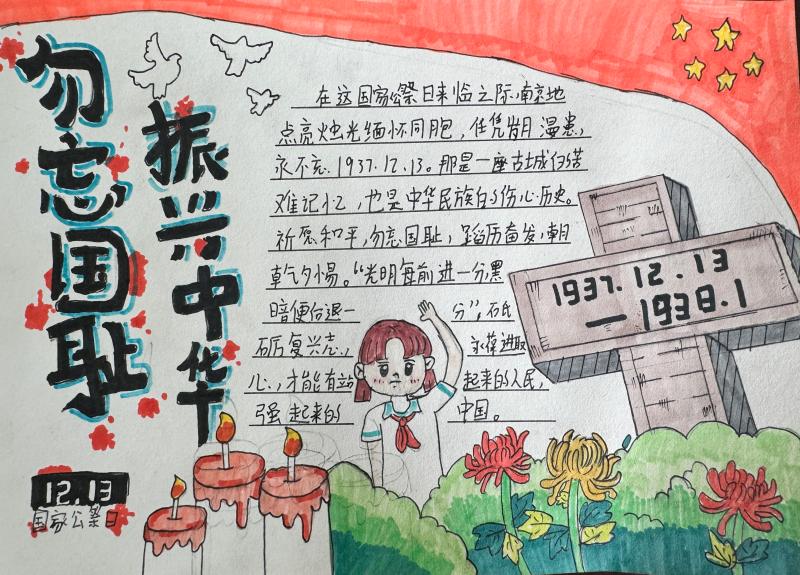 勿忘国耻
振兴中华
在这国家公祭日来临之际，南京地
点亮烛光缅怀同胞，任凭岁月漫患，
永不忘．1937.12.13。那是一座古城的苦
难记忆，也是中华民族的伤心历史。
祈愿和平，勿忘国耻，踔厉奋发，朝
乾夕惕。“光明每前进一分，黑
暗便后退一分”，砥
砺复兴志，永葆进取
心，才能有站起来的人民，
强起来的中国。
1937.12.13
—1938.1
12.13
国家公祭日